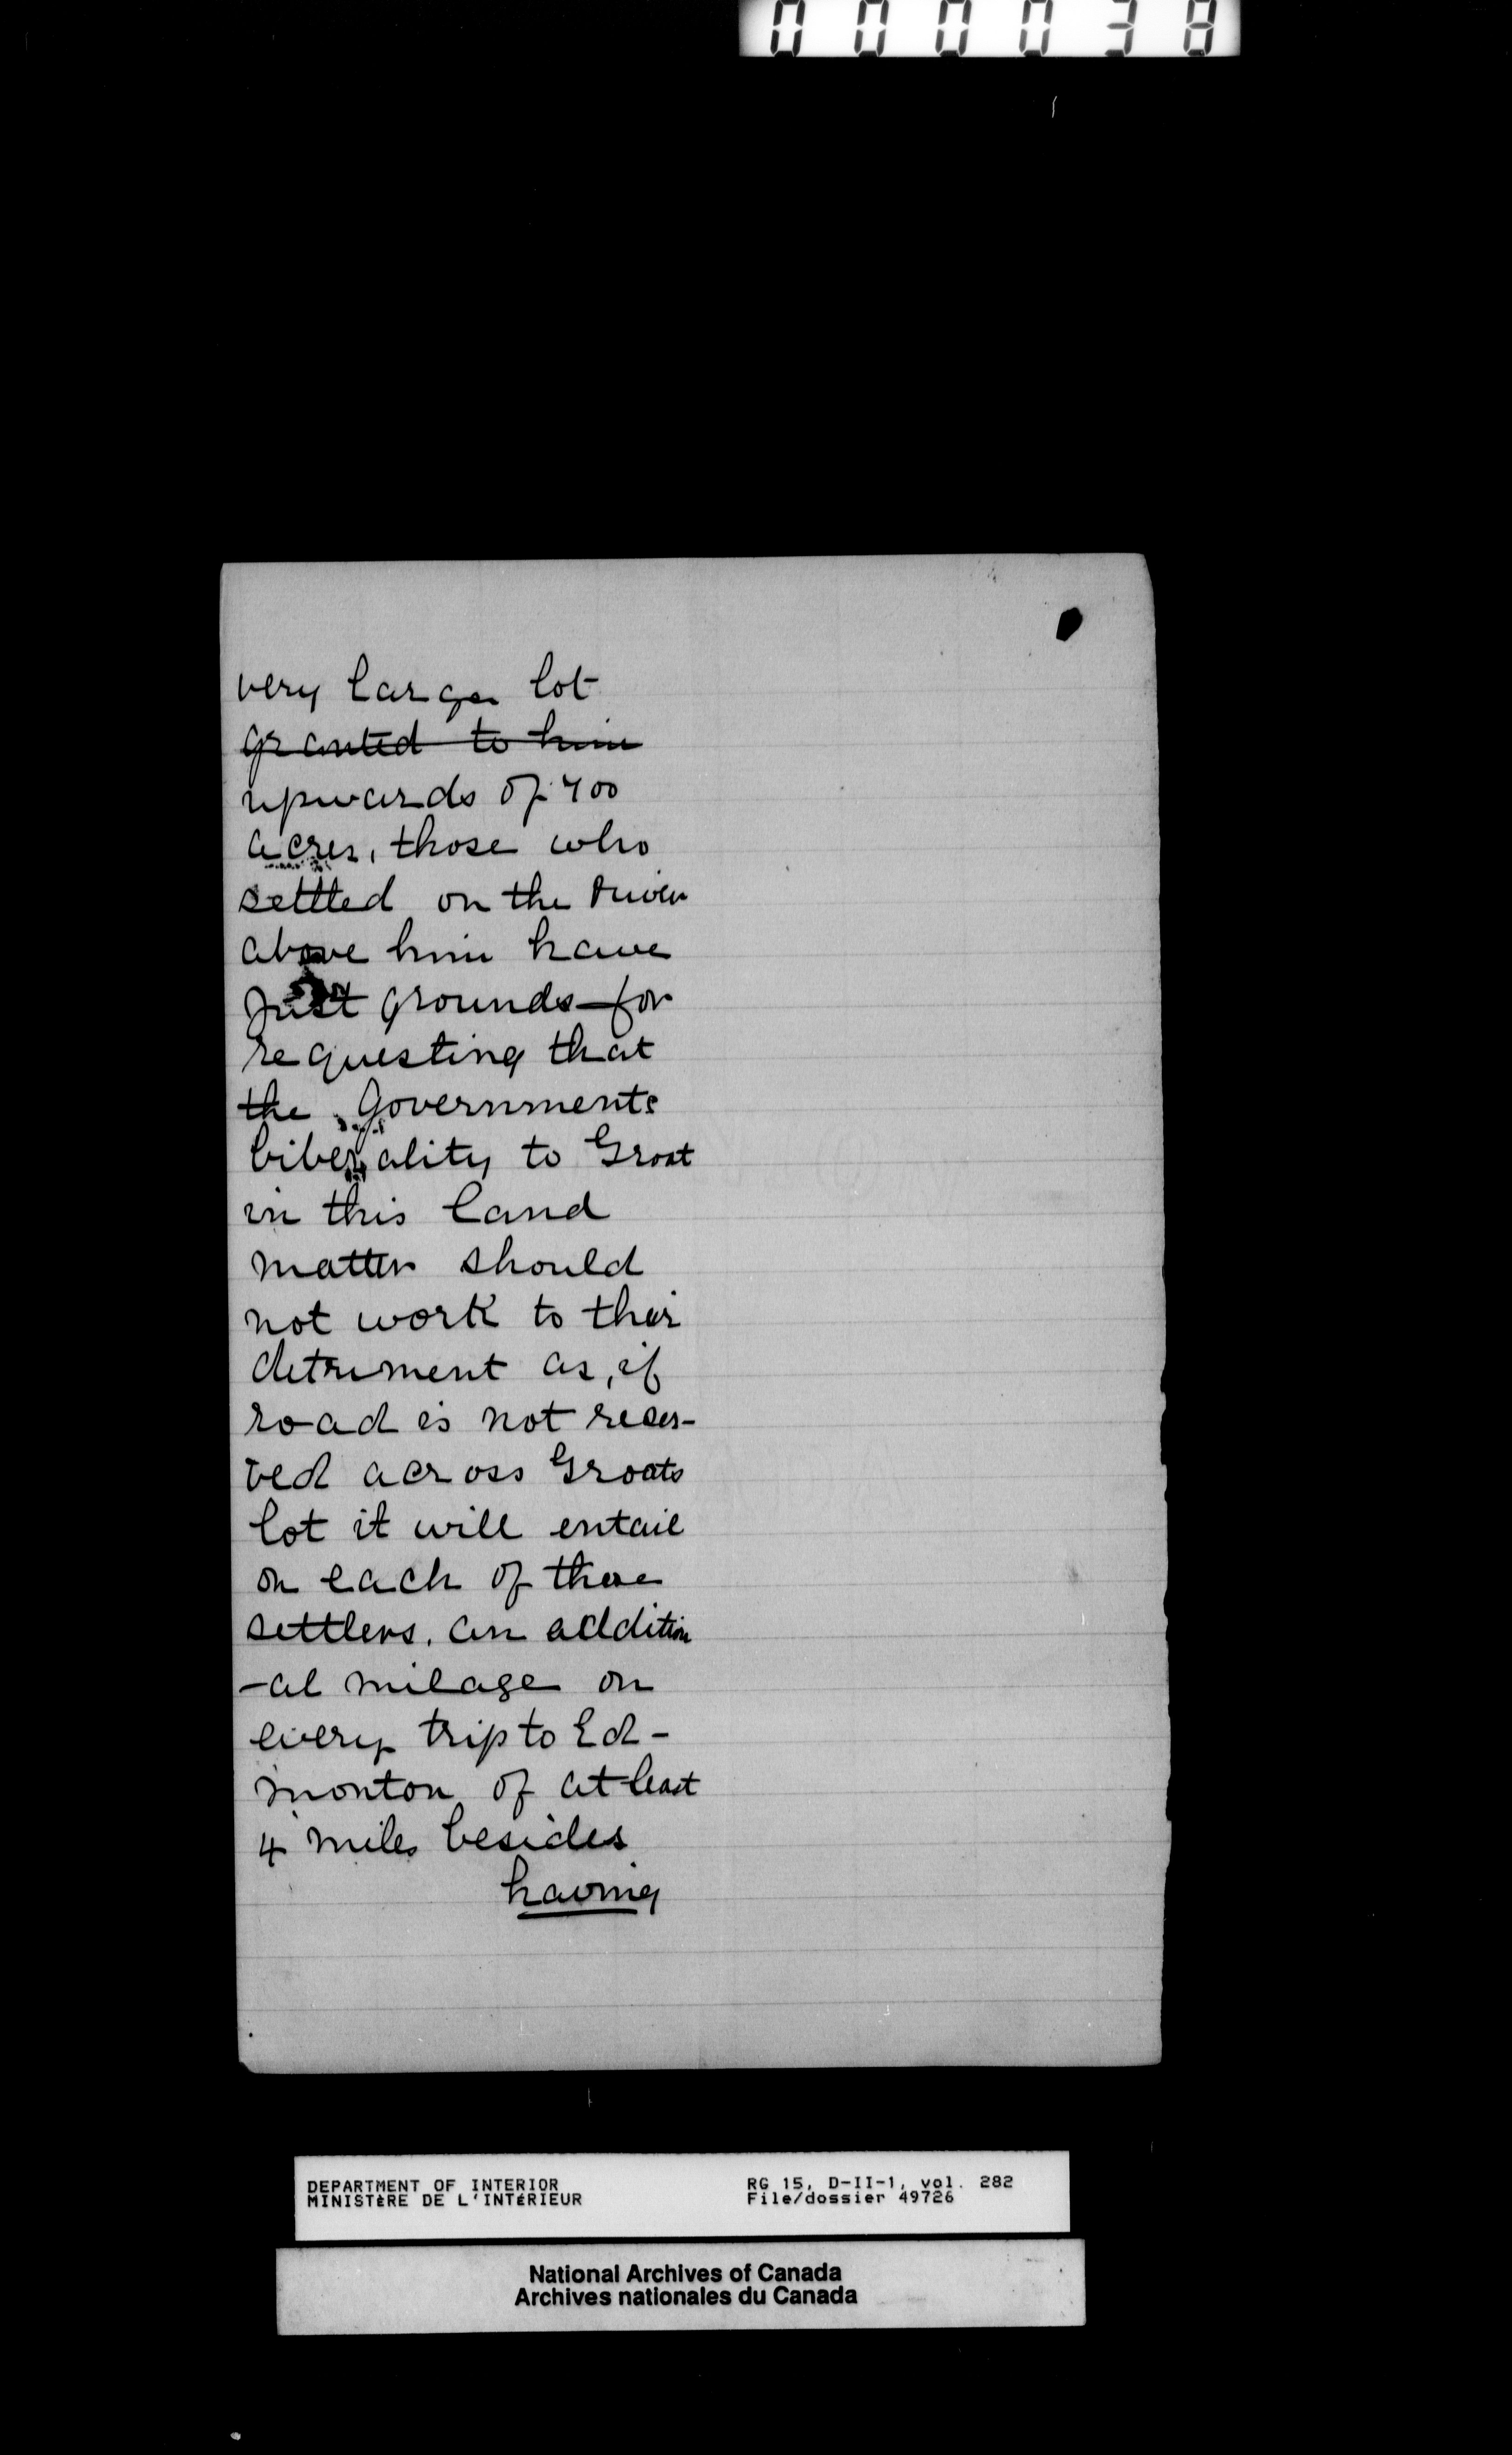 000038
very large lot
granted to him
upwards of 700
acres, those who
settled on the River
above him have
just grounds for
requesting that
the Governments
liberality to Groat
in this land
matter should
not work to their
detriment as, if
road is not reser-
ved across Groats
lot it will entail
on each of these
settlers, an addition
-al milage on
every trip to Ed-
monton of at least
4 miles besides
having
DEPARTMENT OF INTERIOR RG 15, D-II-1, vol. 282
MINISTÈRE DE L'INTÉRIEUR File/dossier 49726
National Archives of Canada
Archives nationales du Canada